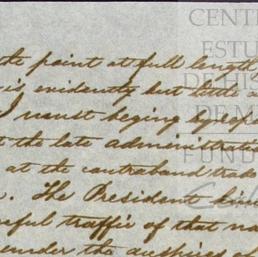 the point at full length
is evidently but little
I must beging by
the late administrati
at the contraband trade
The President
ful traffic of that na
under the auspices of
CENT
ESTU
DE HIS
DE M
FUND